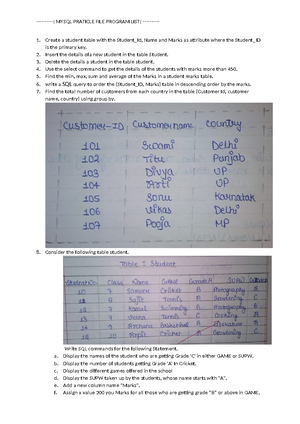 ---------( MYSQL PRATICLE FILE PROGRAM LIST) ---------
1. Create a student table with the Student_Id, Name and Marks as attribute where the Student_ID
is the primary key.
2. Insert the details of a new student in the table Student.
3. Delete the details a student in the table student.
4. Use the select command to get the details of the students with marks more than 450.
5. Find the min, max, sum and average of the Marks in a student marks table.
6. write a SQL query to order the (Student_ID, Marks) table in descending order by the marks.
7. Find the total number of customers from each country in the table (Customer Id, customer
name, country) using group by.
Customer-ID Customer name Country
101 Swami Delhi
102 Titu Punjab
103 Divya UP
104 UP
105 Sonu Karnatak
106 Vikas Delhi
107 Pooja MP
8. Consider the following table student.
Table : Student
Class Name Game SUPW
7 Cricket
8 Sujit Tennis Gardening C
7 Kamal Swimming B Photography
7 Veena Tennis C Cooking A
9 Archana Basketball A Literature
10 Arpit Cricket A Gardening C
Write SQL commands for the following Statement.
a. Display the names of the student who are getting Grade 'C' in either GAME or SUPW.
b. Display the number of students getting Grade 'A' in Cricket.
c. Display the different games offered in the school
d. Display the SUPW taken up by the students, whose name starts with "A".
e. Add a new column name "Marks".
f. Assign a value 200 you Marks for all those who are getting grade "B" or above in GAME.